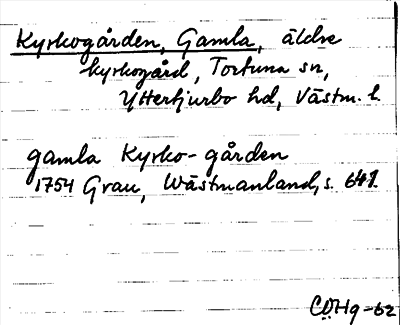 Kyrkogården, Gamla, äldre
kyrkogård, Tortuna sn,
Yttertjurbo hd, Västm. l.
gamla Kyrko-gården
1754 Grau, Wästmanland, s.
CÖHg-62